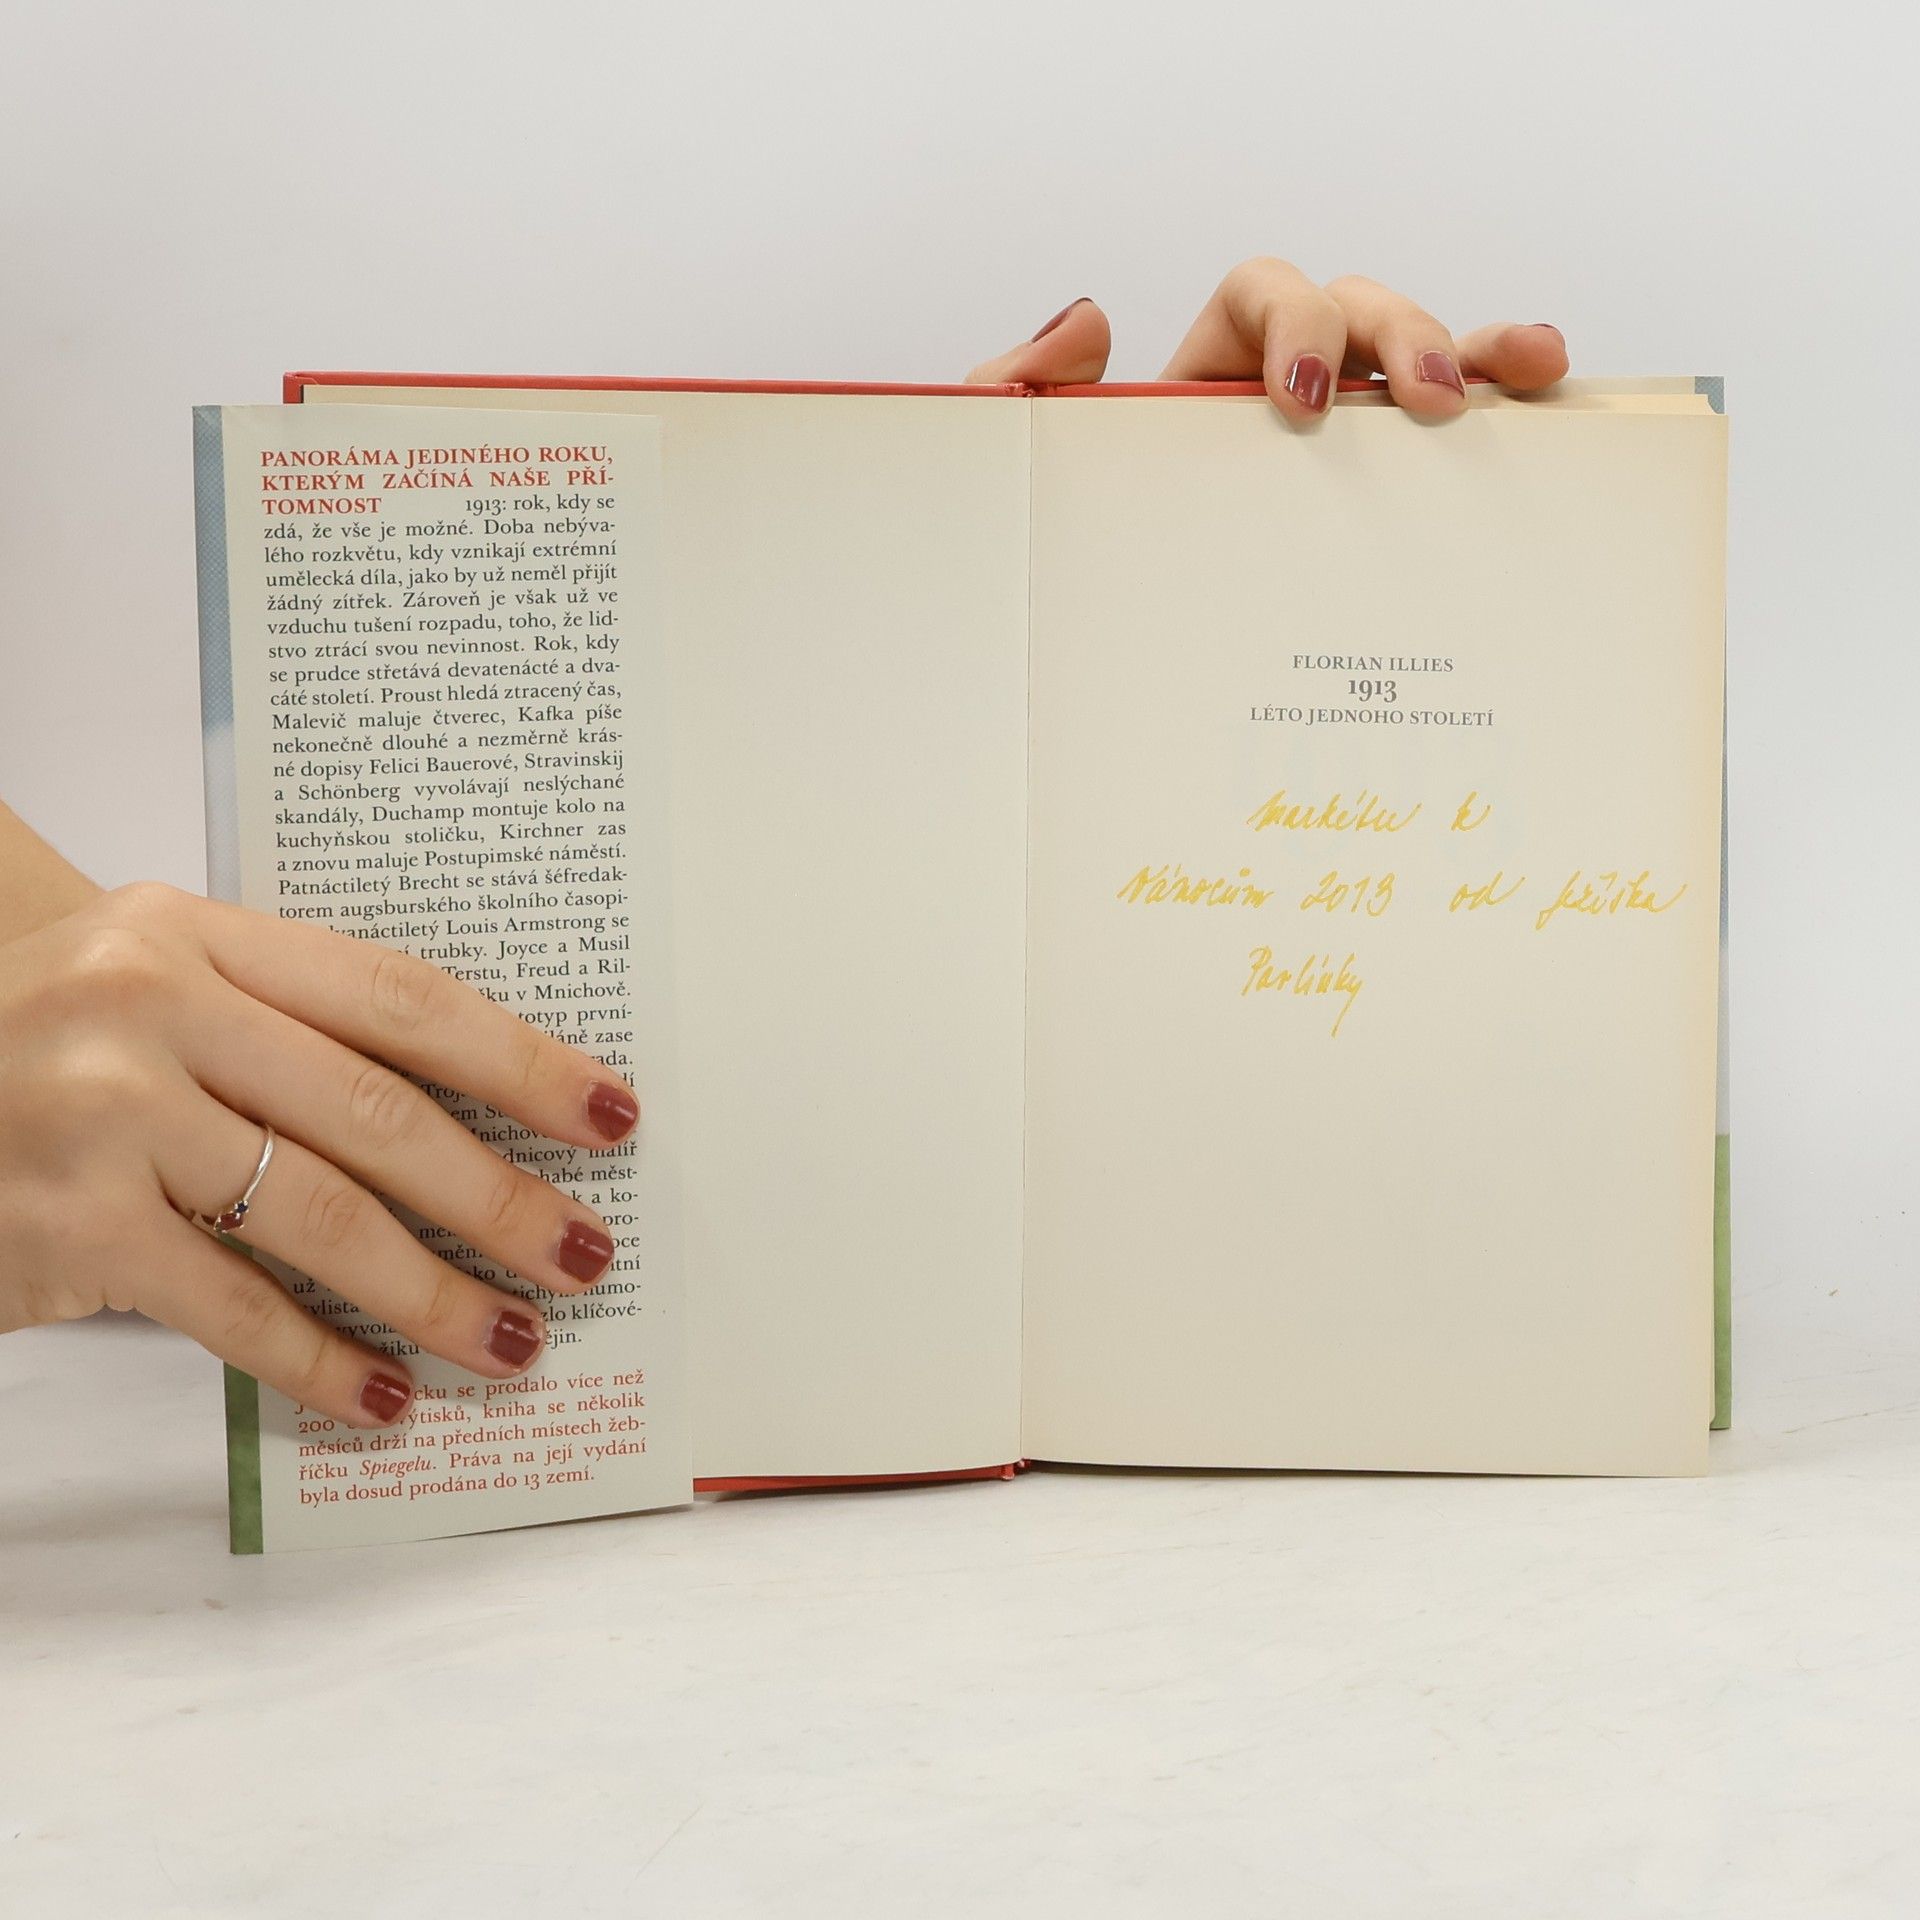 PANORÁMA JEDINÉHO ROKU,
KTERÝM ZAČÍNÁ NAŠE PŘÍ-
TOMNOST 1913: rok, kdy se
zdá, že vše je možné. Doba nebýva-
lého rozkvětu, kdy vznikají extrémní
umělecká díla, jako by už neměl přijít
žádný zítřek. Zároveň je však už ve
vzduchu tušení rozpadu, toho, že lid-
stvo ztrácí svou nevinnost. Rok, kdy
se prudce střetává devatenácté a dva-
cáté století. Proust hledá ztracený čas,
Malevič maluje čtverec, Kafka píše
nekonečně dlouhé a nezměrně krás-
né dopisy Felici Bauerové, Stravinskij
a Schönberg vyvolávají neslýchané
skandály, Duchamp montuje kolo na
kuchyňskou stoličku, Kirchner zas
a znovu maluje Postupimské náměstí.
Patnáctiletý Brecht se stává šéfredak-
torem augsburského školního časopi-
vanáctiletý Louis Armstrong se
trubky. Joyce a Musil
Terstu, Freud a Ril-
v Mnichově.
totyp první-
zase
dnicový malíř
měst-
a ko-
pro-
už
humo-
klíčové-
ějin.
cku se prodalo více než
200 výtisků, kniha se několik
měsíců drží na předních místech žeb-
říčku Spiegelu. Práva na její vydání
byla dosud prodána do 13 zemí.
FLORIAN ILLIES
1913
LÉTO JEDNOHO STOLETÍ
Markétce k
Vánocům 2013 od Ježíška
Pavlínky